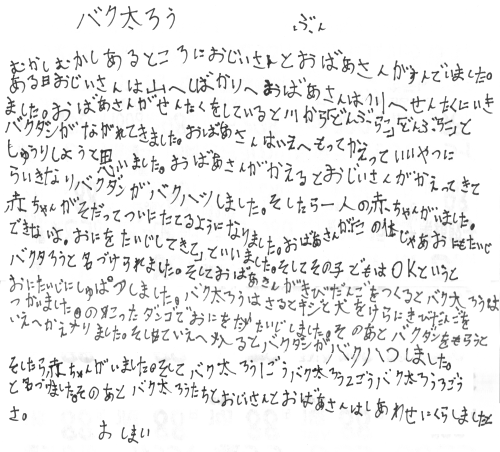 バク太ろう　ぶん
むかしむかしあるところにおじいさんとおばあさんがすんでいました。
ある日おじいさんは山へしばかりへ おばあさんは川へせんたくにいき
ました。おばあさんがせんたくをしていると川から「どんぶらこ」「どんぶらこ」と
バクダンがながれてきました。おばあさんはいえへもってかえっていいやつに
しゅうりしようと思いました。おばあさんがかえるとおじいさんがかえってきて
らいきなりバクダンがバクハツしました。そしたら一人の赤ちゃんがいました。
赤ちゃんがそだってついにたてるようになりました。おばあさんが「この体じゃあおにもたいじ
できないよ。おにをたいじしてきて」といいました。そしてその子どもはOKというと
バクタろうと名づけられました。そしておばあさんがきびだんごをつくるとバク太ろうは
おにたいじにしゅぱつしました。バク太ろうはさるとキジと犬をけらにきびだんごを
つかいました。のこったダンゴでおにをたいじしました。そのあとバクダンをもらうと
いえへかえりました。そしていえへ入るとバクダンがバクハつしました。
そしたら赤ちゃんがいました。そしてバク太ろう1ごうバク太ろう2ごうバク太ろう3ごう
と名づけました。そのあとバク太ろうたちとおじいさんとおばあさんはしあわせにくらしましたと
さ。
おしまい